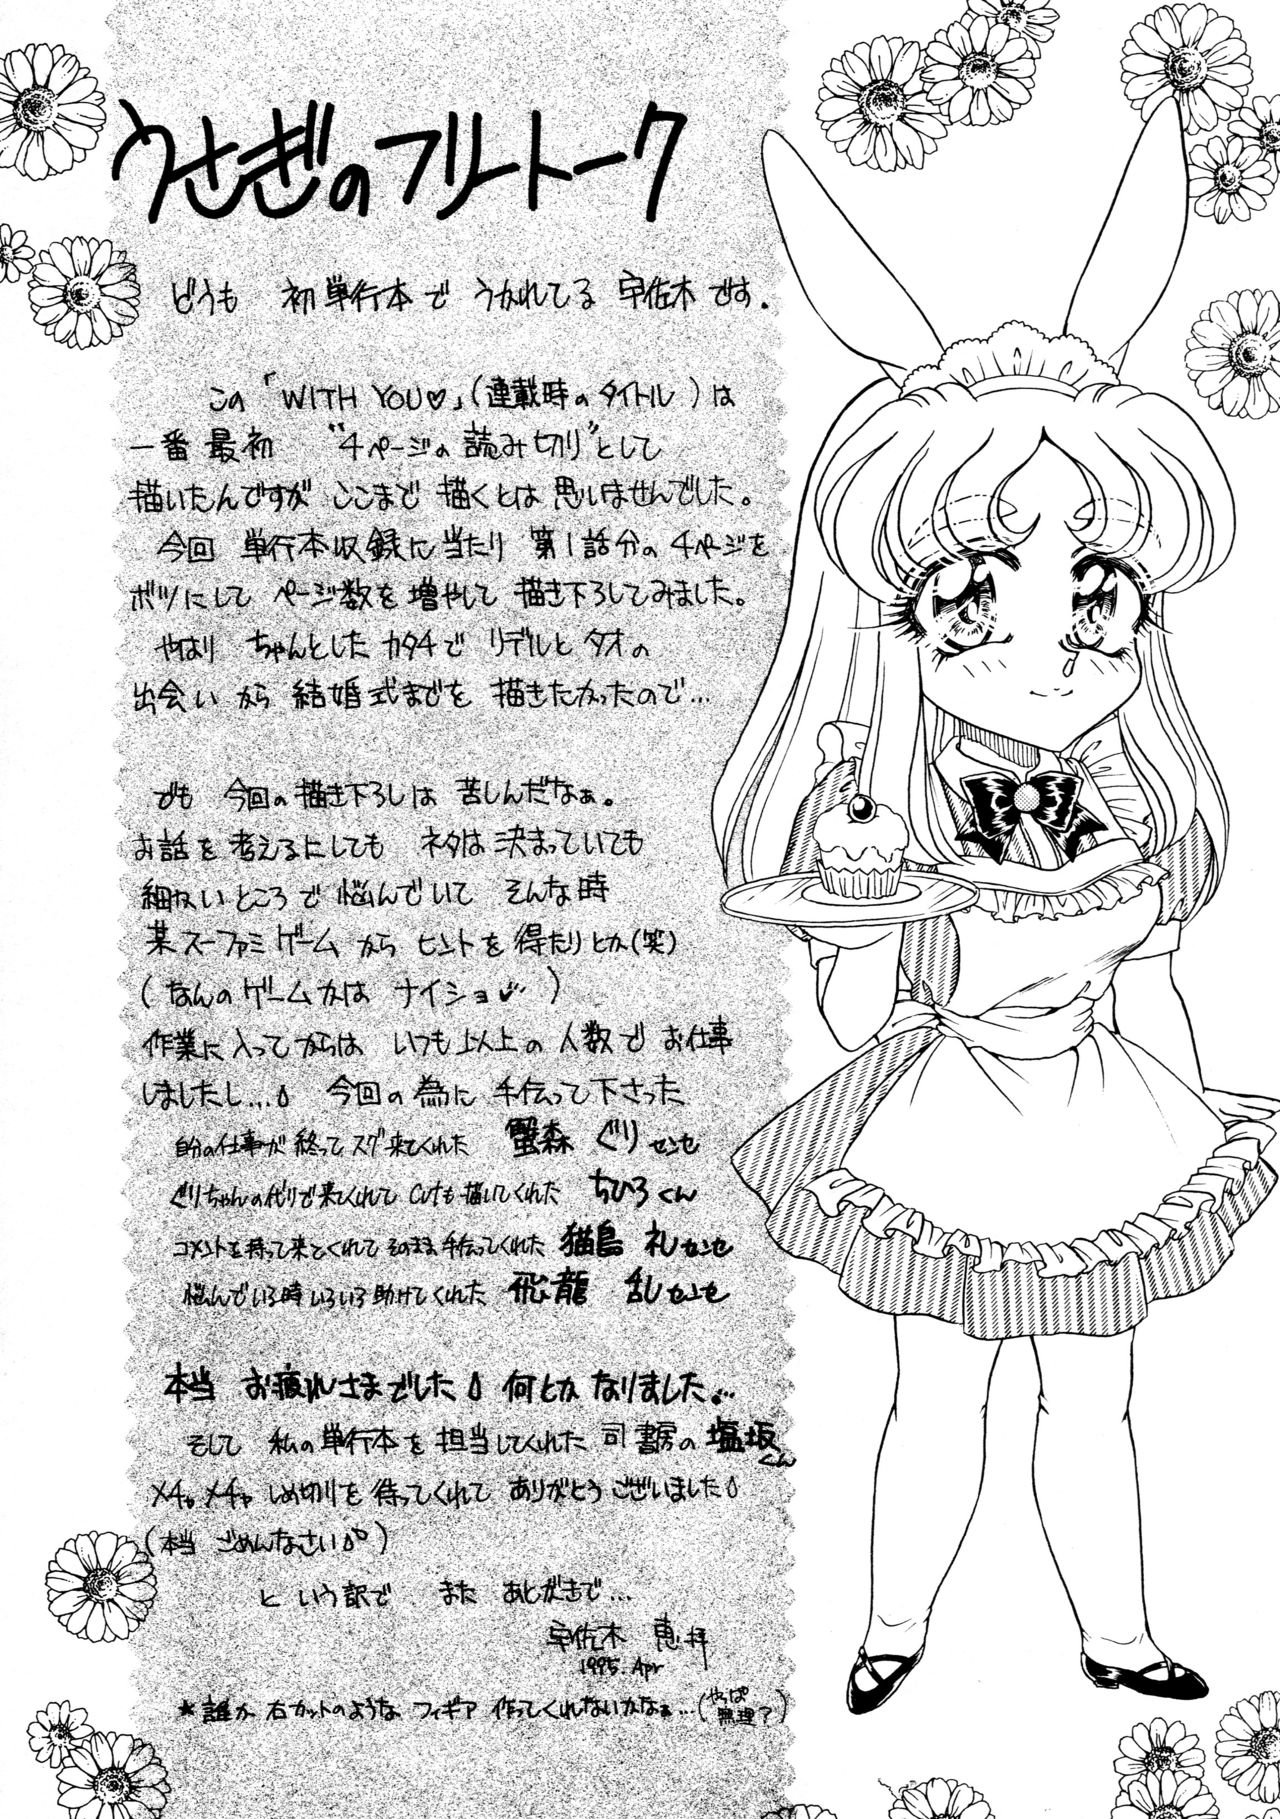 うさぎのフリートーク
どうも 初単行本で うかれてる 宇佐木です。
この「WITH YOU♡」(連載時のタイトル)は
一番最初 “4ページの読み切り”として
描いたんですが ここまで 描くとは 思いませんでした。
今回 単行本収録に当たり 第1話分の4ページを
ボツにして ページ数を増やして 描き下ろしてみました。
やはり ちゃんとした カタチで リデルと タオの
出会い から 結婚式までを 描きたかったので…
でも 今回の描き下ろしは 苦しんだなぁ。
お話を考えるにしても ネタは決まっていても
細かいところで悩んでいて そんな時
某スーファミゲーム から ヒントを得たりとか(笑)
(なんのゲームかは ナイショ♡)
作業に入ってからは いつも以上の人数で お仕事
しましたし… 今回の為に 手伝って下さった
自分の仕事が終ってスグ来てくれた 蟹森 ぐり センセ
ぐりちゃんの代りで来てくれて Cutも描いてくれた ちひろくん
コメントを持って来てくれて そのまま手伝ってくれた 猫島 礼 センセ
悩んでいる時いろいろ助けてくれた 飛龍 乱 センセ
本当 お疲れさまでした 何とか なりました…
そして 私の単行本を担当してくれた 司書房の 塩坂くん
メチャメチャ しめ切りを待ってくれて ありがとうございました
(本当 ごめんなさい)
という訳で また あとがきで…
宇佐木 恵 拝
1995. Apr
★誰か 右カットのような フィギア 作ってくれないかなぁ…(やっぱ無理?)